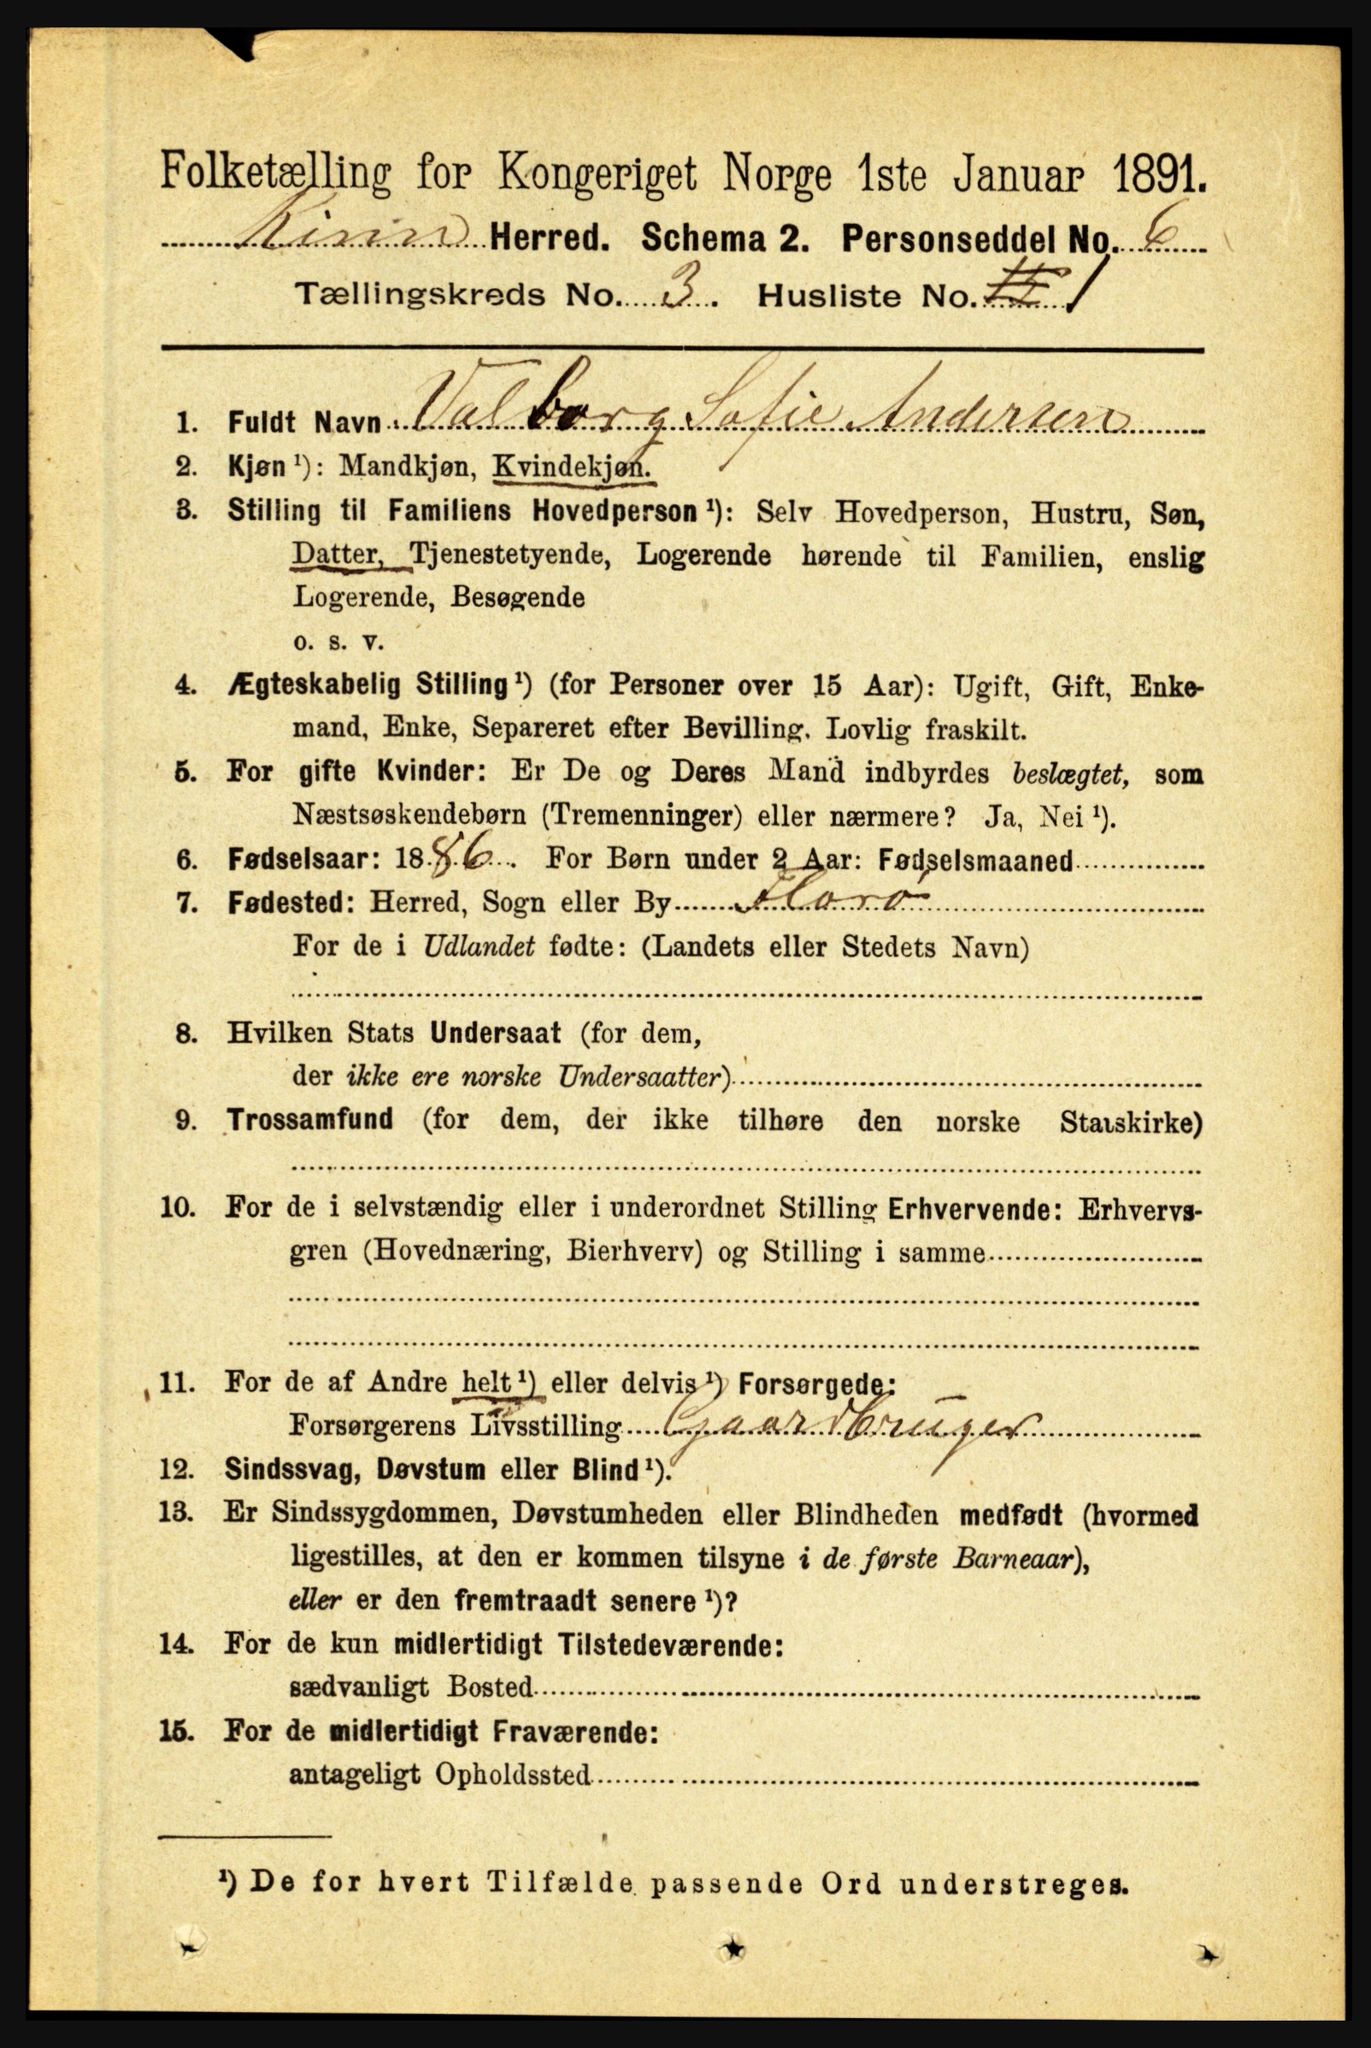 Folketælling for Kongeriget Norge 1ste Januar 1891.
Kinn Herred. Schema 2. Personseddel No. 6
Tællingskreds No. 3. Husliste No. 1
1. Fuldt Navn Valborg Sofie Andersen
2. Kjøn ¹): Mandkjøn, Kvindekjøn.
3. Stilling til Familiens Hovedperson ¹): Selv Hovedperson, Hustru, Søn,
Datter, Tjenestetyende, Logerende hørende til Familien, enslig
Logerende, Besøgende
o. s. v.
4. Ægteskabelig Stilling ¹) (for Personer over 15 Aar): Ugift, Gift, Enke-
mand, Enke, Separeret efter Bevilling. Lovlig fraskilt.
5. For gifte Kvinder: Er De og Deres Mand indbyrdes beslægtet, som
Næstsøskendebørn (Tremenninger) eller nærmere? Ja, Nei ¹).
6. Fødselsaar: 1886. For Børn under 2 Aar: Fødselsmaaned
7. Fødested: Herred, Sogn eller By Florø
For de i Udlandet fødte: (Landets eller Stedets Navn)
8. Hvilken Stats Undersaat (for dem,
der ikke ere norske Undersaatter)
9. Trossamfund (for dem, der ikke tilhøre den norske Statskirke)
10. For de i selvstændig eller i underordnet Stilling Erhvervende: Erhvervs-
gren (Hovednæring, Bierhverv) og Stilling i samme
11. For de af Andre helt ¹) eller delvis ¹) Forsørgede:
Forsørgerens Livsstilling Gaardbruger
12. Sindssvag, Døvstum eller Blind ¹).
13. Er Sindssygdommen, Døvstumheden eller Blindheden medfødt (hvormed
ligestilles, at den er kommen tilsyne i de første Barneaar),
eller er den fremtraadt senere ¹)?
14. For de kun midlertidigt Tilstedeværende:
sædvanligt Bosted
15. For de midlertidigt Fraværende:
antageligt Opholdssted
¹) De for hvert Tilfælde passende Ord understreges.